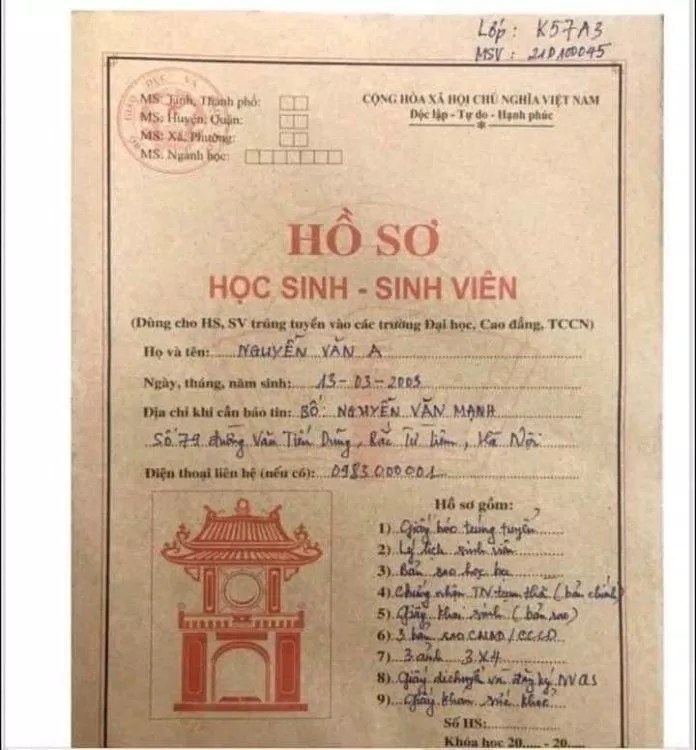 Lớp : K57A3
MSV : 21D100045
MS: Tỉnh, Thành phố:
MS: Huyện, Quận:
MS: Xã, Phường:
MS: Ngành học:
CỘNG HÒA XÃ HỘI CHỦ NGHĨA VIỆT NAM
Độc lập - Tự do - Hạnh phúc
HỒ SƠ
HỌC SINH - SINH VIÊN
(Dùng cho HS, SV trúng tuyển vào các trường Đại học, Cao đẳng, TCCN)
Họ và tên: NGUYỄN VĂN A
Ngày, tháng, năm sinh: 13-03-2003
Địa chỉ khi cần báo tin: BỐ: NGUYỄN VĂN MẠNH
Số 79 đường Văn Tiến Dũng, Bắc Từ Liêm, Hà Nội
Điện thoại liên hệ (nếu có): 0983.000001
Hồ sơ gồm:
1) Giấy báo trúng tuyển
2) Lý lịch sinh viên
3) Bản sao học bạ
4) Chứng nhận TN tạm thời (bản chính)
5) Giấy khai sinh (bản sao)
6) 3 bản sao CMND/CCCD
7) 3 ảnh 3x4
8) Giấy di chuyển và đăng ký NVQS
9) Giấy khám sức khoẻ
Số HS:
Khóa học 20..... - 20.....